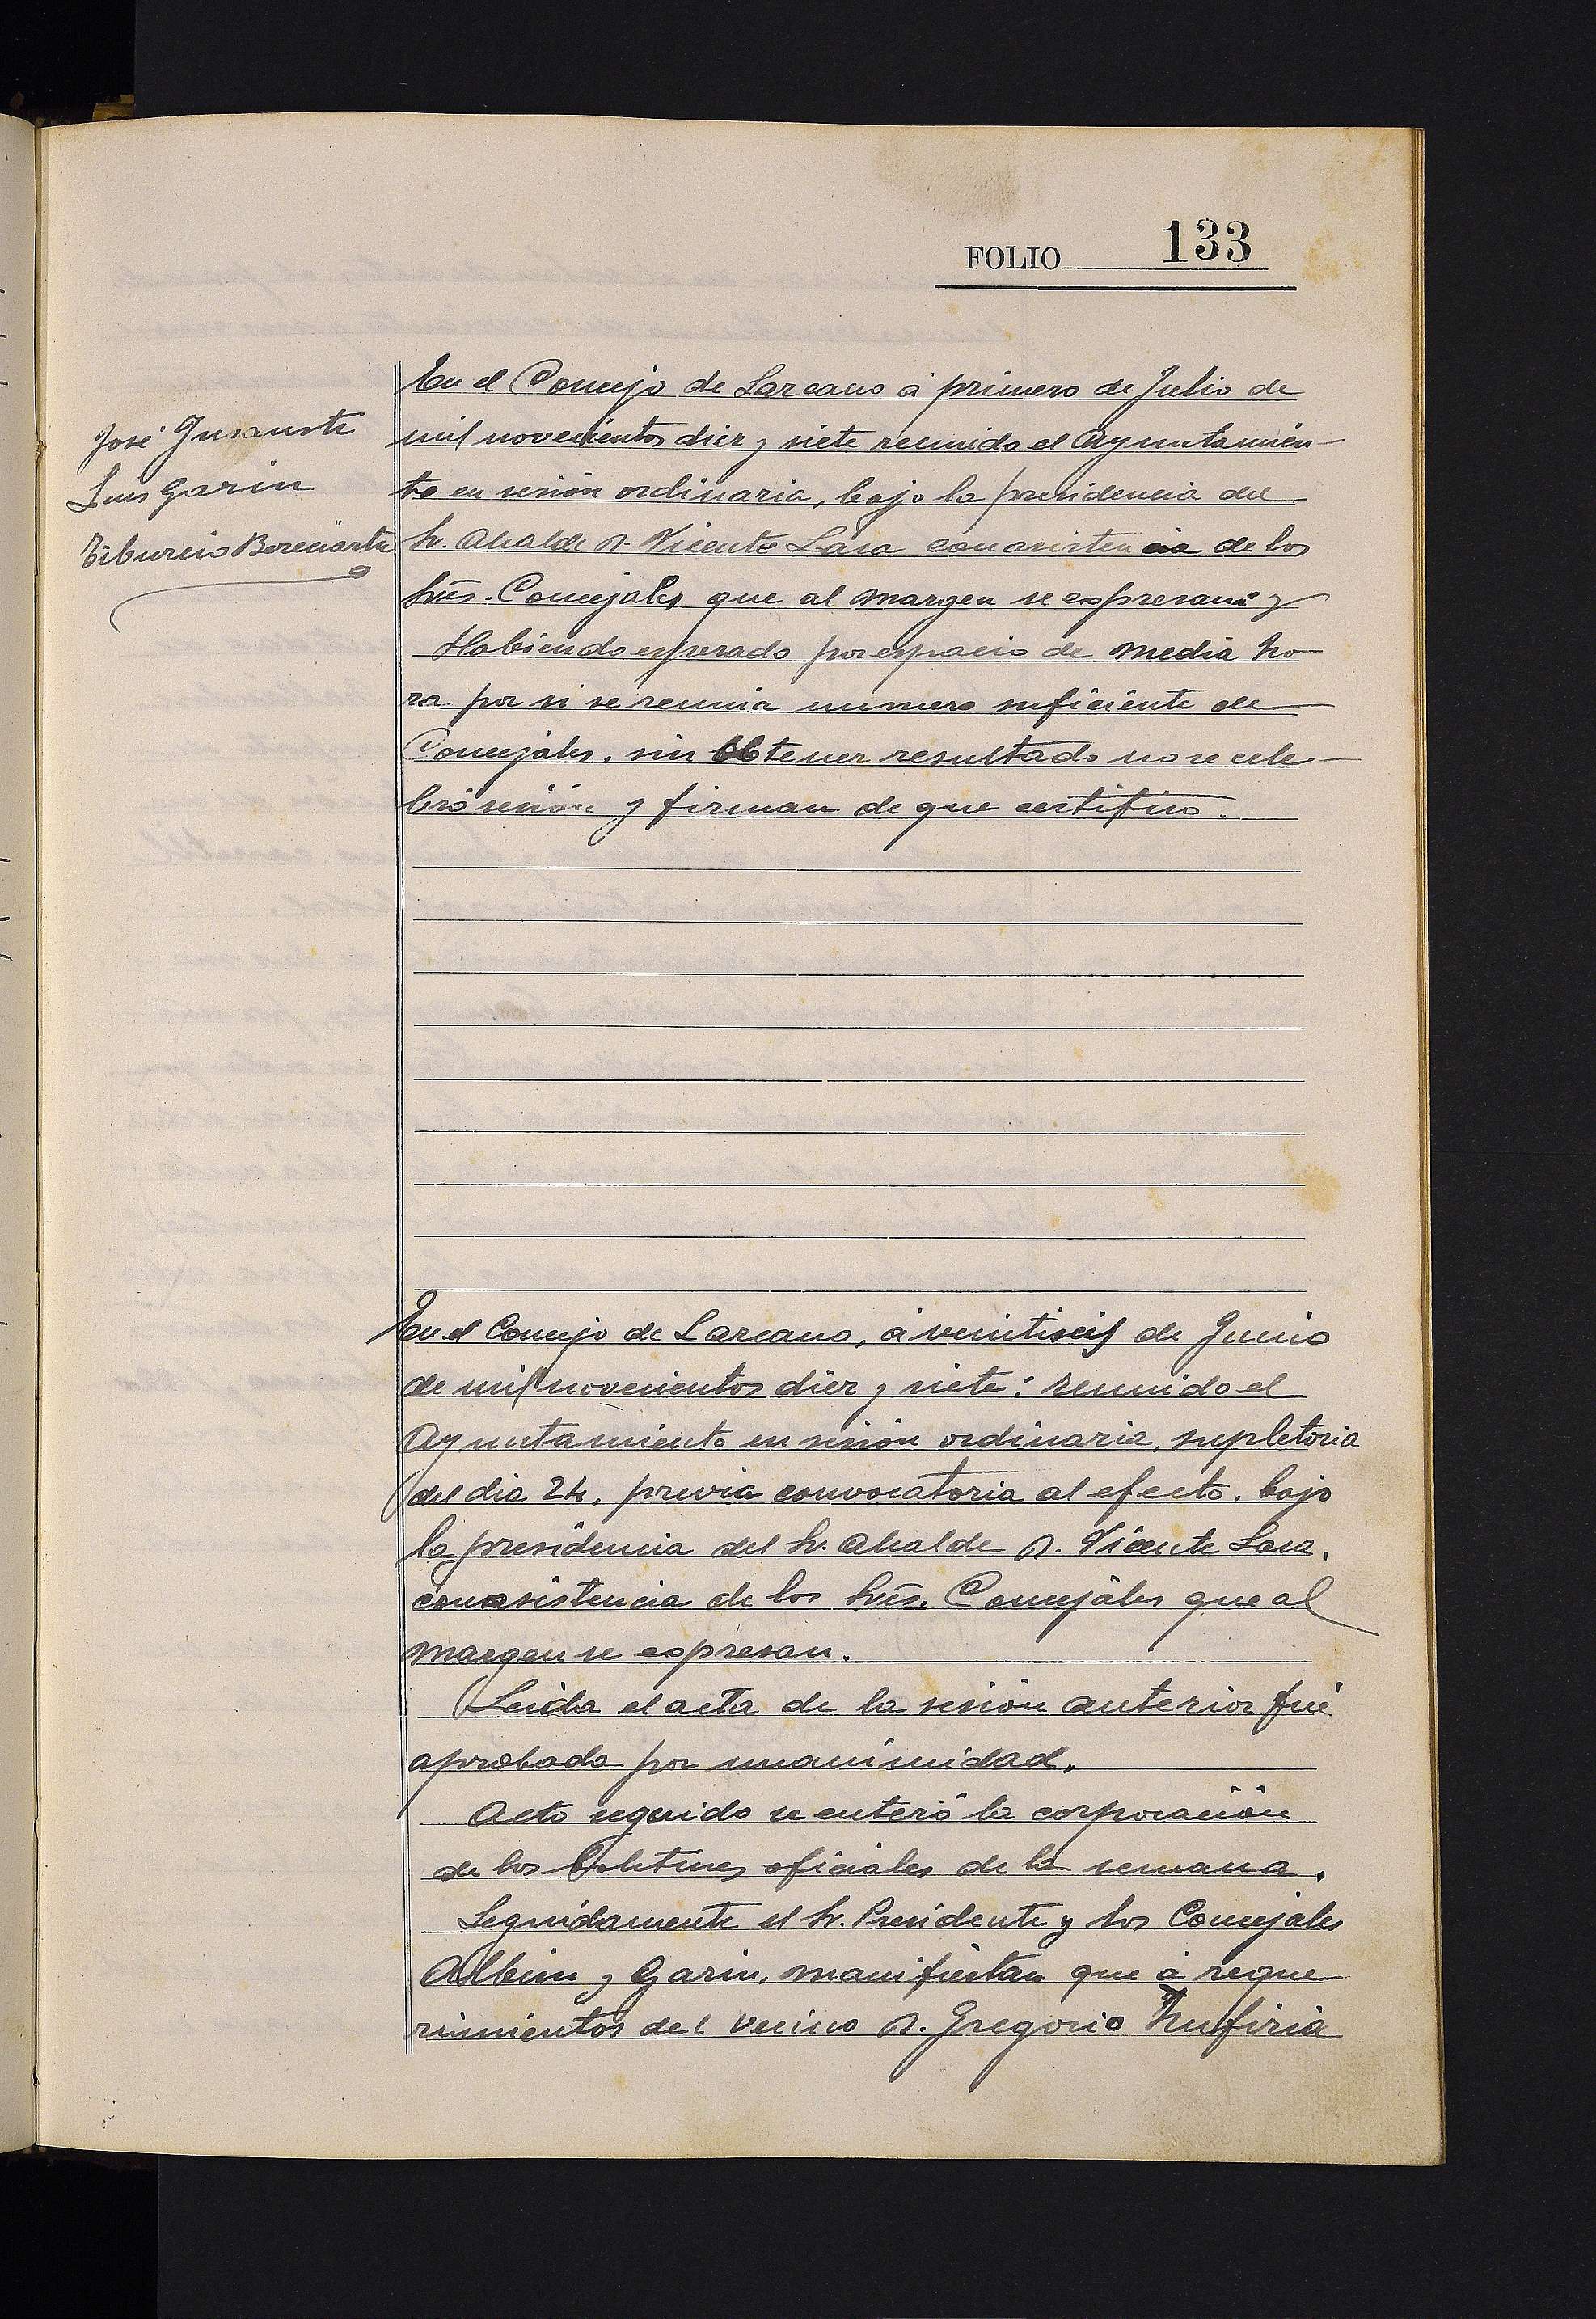 FOLIO 133
José Insausti
Luis Garin
Tiburcio Bereciartu
En el Concejo de Lazcano á primero de Julio de
mil novecientos diez y siete reunido el Ayuntamien-
to en sesión ordinaria, bajo la presidencia del
Sr. Alcalde D. Vicente Lasa con asistencia de los
Srês. Concejales que al margen se expresan y
Habiendo esperado por espacio de media ho-
ra por si se reunia numero suficiente de
Concejales, sin obtener resultado no se cele-
bró sesión y firman de que certifico.
En el Concejo de Lazcano, á veintiseis de Junio
de mil novecientos diez y siete: reunido el
Ayuntamiento en sesión ordinaria, supletoria
del dia 24, previa convocatoria al efecto, bajo
la presidencia del Sr. Alcalde D. Vicente Lasa,
con asistencia de los Srês. Concejales que al
margen se expresan.
Leida el acta de la sesión anterior fué
aprobada por unanimidad.
Acto seguido se enteró la corporación
de los Boletines oficiales de la semana.
Seguidamente el Sr. Presidente y los Concejales
Albisu y Garin, manifiestan que á reque-
rimientos del vecino D. Gregorio